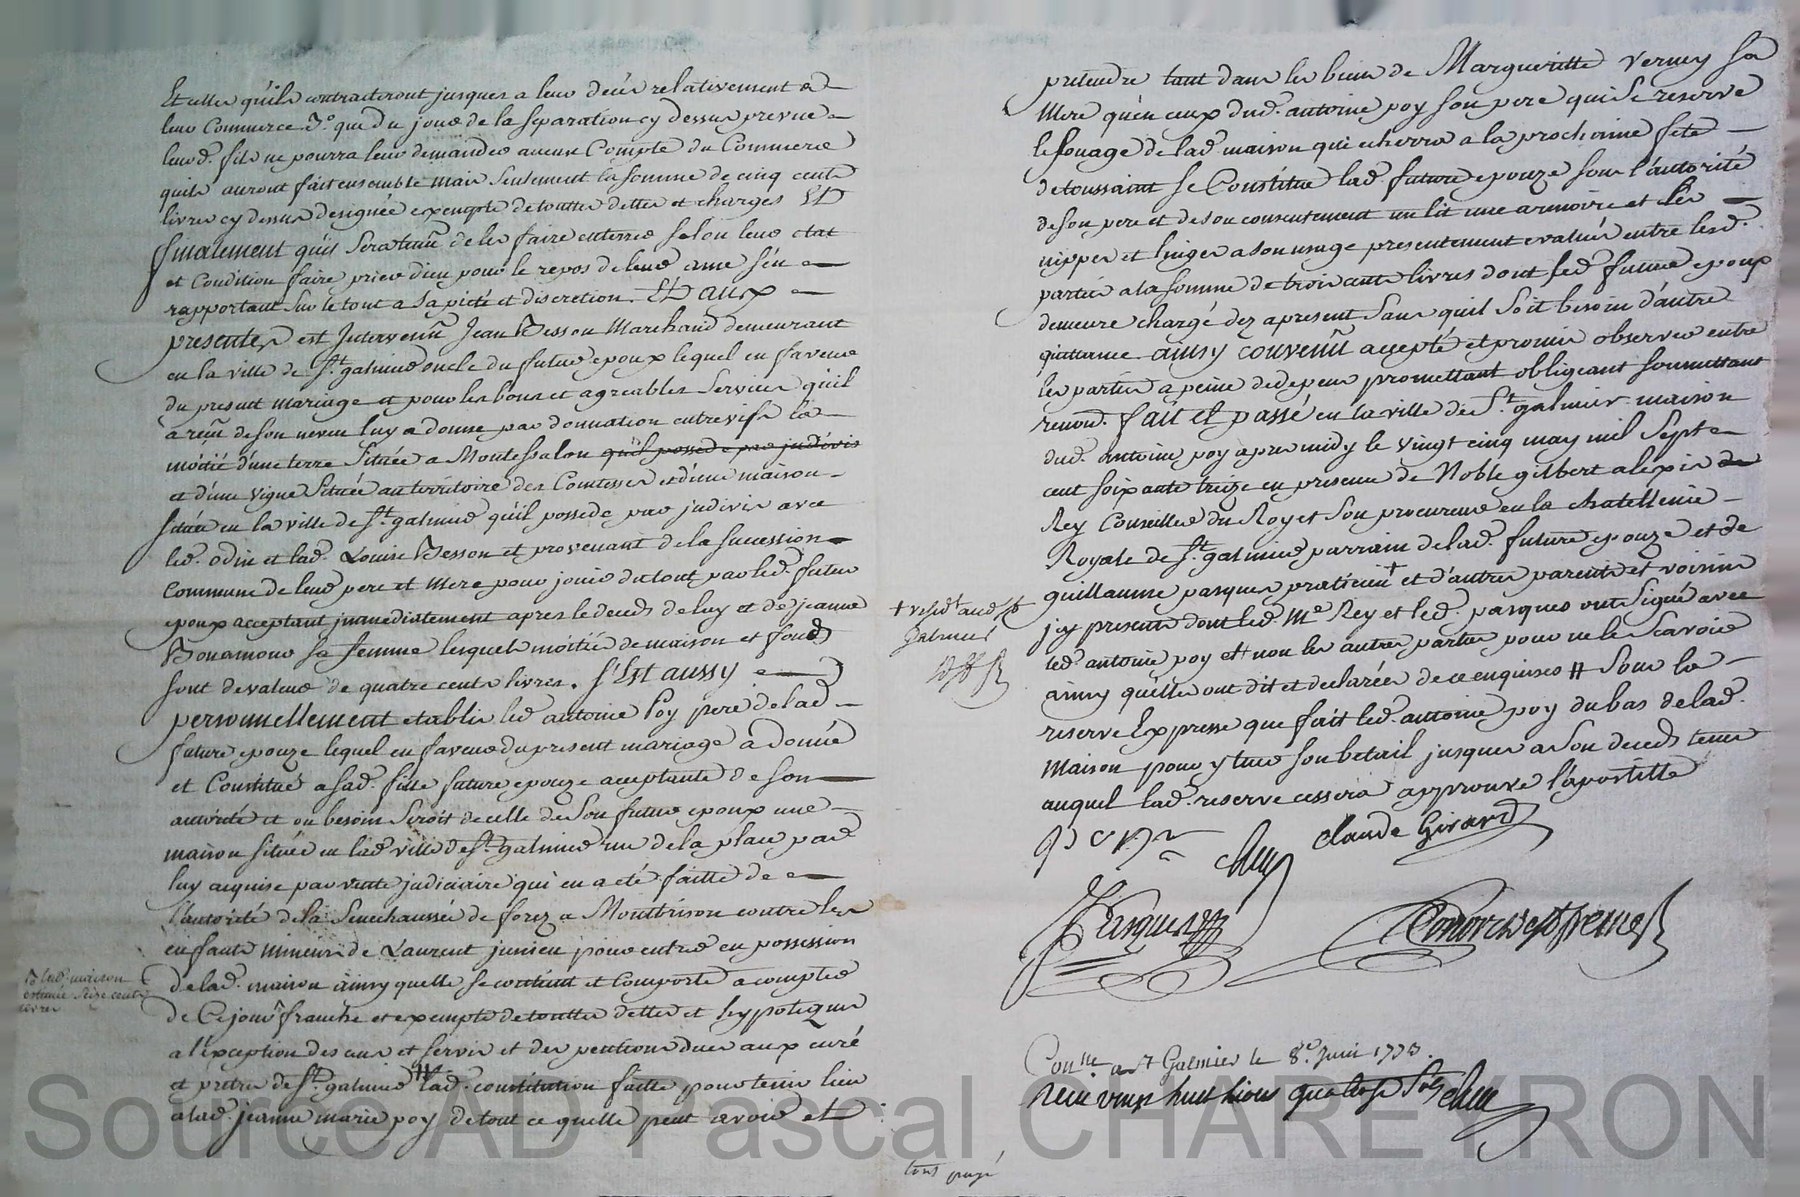 Et celles qu'ils contracteront jusques a leur decés relativement a
leur Commerce 3.º que du jour de la separation cy dessus prevue
leurd. fils ne pourra leur demander aucun Compte du Commerce
quils auront fait ensemble mais seulement la somme de cinq cents
livres cy dessus designée exempte de toutte dette et charges Et
finalement qu'il sera tenu de les faire enterrer selon leur etat
et Condition faire prier dieu pour le repos de leur ame s'en
rapportant sur le tout a sa pieté et discretion. Et aux
presentes est Intervenu Jean Besson Marchand demeurant
en la ville de St. galmier oncle du futur epoux lequel en faveur
du present mariage et pour les bons et agreables services qu'il
a reçu de son neveu luy a donné par donnation entrevifs la
moitié d'une terre située a Montessalon qu'il possede par judivis
et d'une vigne située au territoire des Comtesses et d'une maison
située en la ville de St. galmier qu'il possede par judivis avec
led. odin et lad. Louise Besson et provenant de la sucession
Commune de leurs pere et mere pour jouir du tout par led. futur
epoux acceptant jmmediatement apres le deceds de luy et de jeanne
Bonamour sa femme lesquels moitié de maison et fonds
sont de valeur de quatre cents livres. S'Est aussy
personnellement etabli led. antoine Poy pere de lad.
future epouze lequel en faveur du present mariage a donné
et Constitué a sad. fille future epouze acceptante de son
autorité et ou besoin seroit de celle de son futur epoux une
maison située en lad. ville de St. galmier rue de la place par
luy acquise par vente judiciaire qui en a eté faitte de
l'autorité de la Senechaussée de forez a Montbrison contre les
enfants mineurs de Laurent junieu pour entrer en possession
de lad. maison ainsy quelle se contient et Comporte a compter
de Ce jour franche et exempte de touttes dettes et hypoteques
a l'exception des cens et servis et des pentions dues aux curé
et pretres de St. galmier # lad. constitution faitte pour tenir lieu
a lad. jeanne marie poy de tout ce quelle peut avoir et
lad. maison
estimée seize cents
livres
pretendre tant dans les biens de Margueritte verney sa
Mere qu'en ceux dud. antoine poy son pere qui se reserve
le fouage de lad. maison qui echerra a la prochaine fete
de toussaint se Constitue lad. future epouze sous l'autorité
de son pere et de son consentement un lit une armoire et les
nippes et linges a son usage presentement evalués entre lesd.
parties a la somme de trois cents livres dont led. futur epoux
demeure chargé dez apresent sans qu'il soit besoin d'autre
quittance. ainsy convenu accepté et promis observer entre
les parties a peine de depens promettant obligeant soumettant
renonc. fait et passé en la ville de St. galmier maison
dud. antoine poy apres midy le vingt cinq may mil sept
cent soixante treize en presence de Noble gilbert alexis
Rey Conseiller du Roy et son procureur en la chatellenie
Royale de St. galmier parrain de lad. future epouze et de
guillaume pasques praticien + et d'autres parents et voisins
jcy presents dont led. Me. Rey et led. pasques ont signé avec
led. antoine poy et non les autres parties pour ne le scavoir
ainsy quelles ont dit et declarées de ce enquises # sous la
reserve Expresse que fait led. antoine poy du bas de lad.
maison pour y tenir son betail jusques a son deceds tems
auquel lad. reserve cessera approuvé l'apostille
+ resid.t aud. St
Galmier
claude Girard
Pasques
Con.lle a St Galmier le 8.e juin 1773.
Recu vingt huit livres quatorze sols
tous payé
Source AD Pascal CHAREYRON